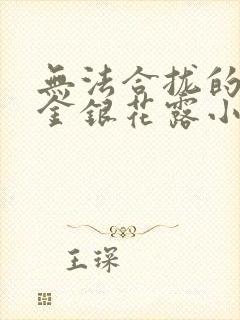 無法合拢的
金銀花露小
王琛